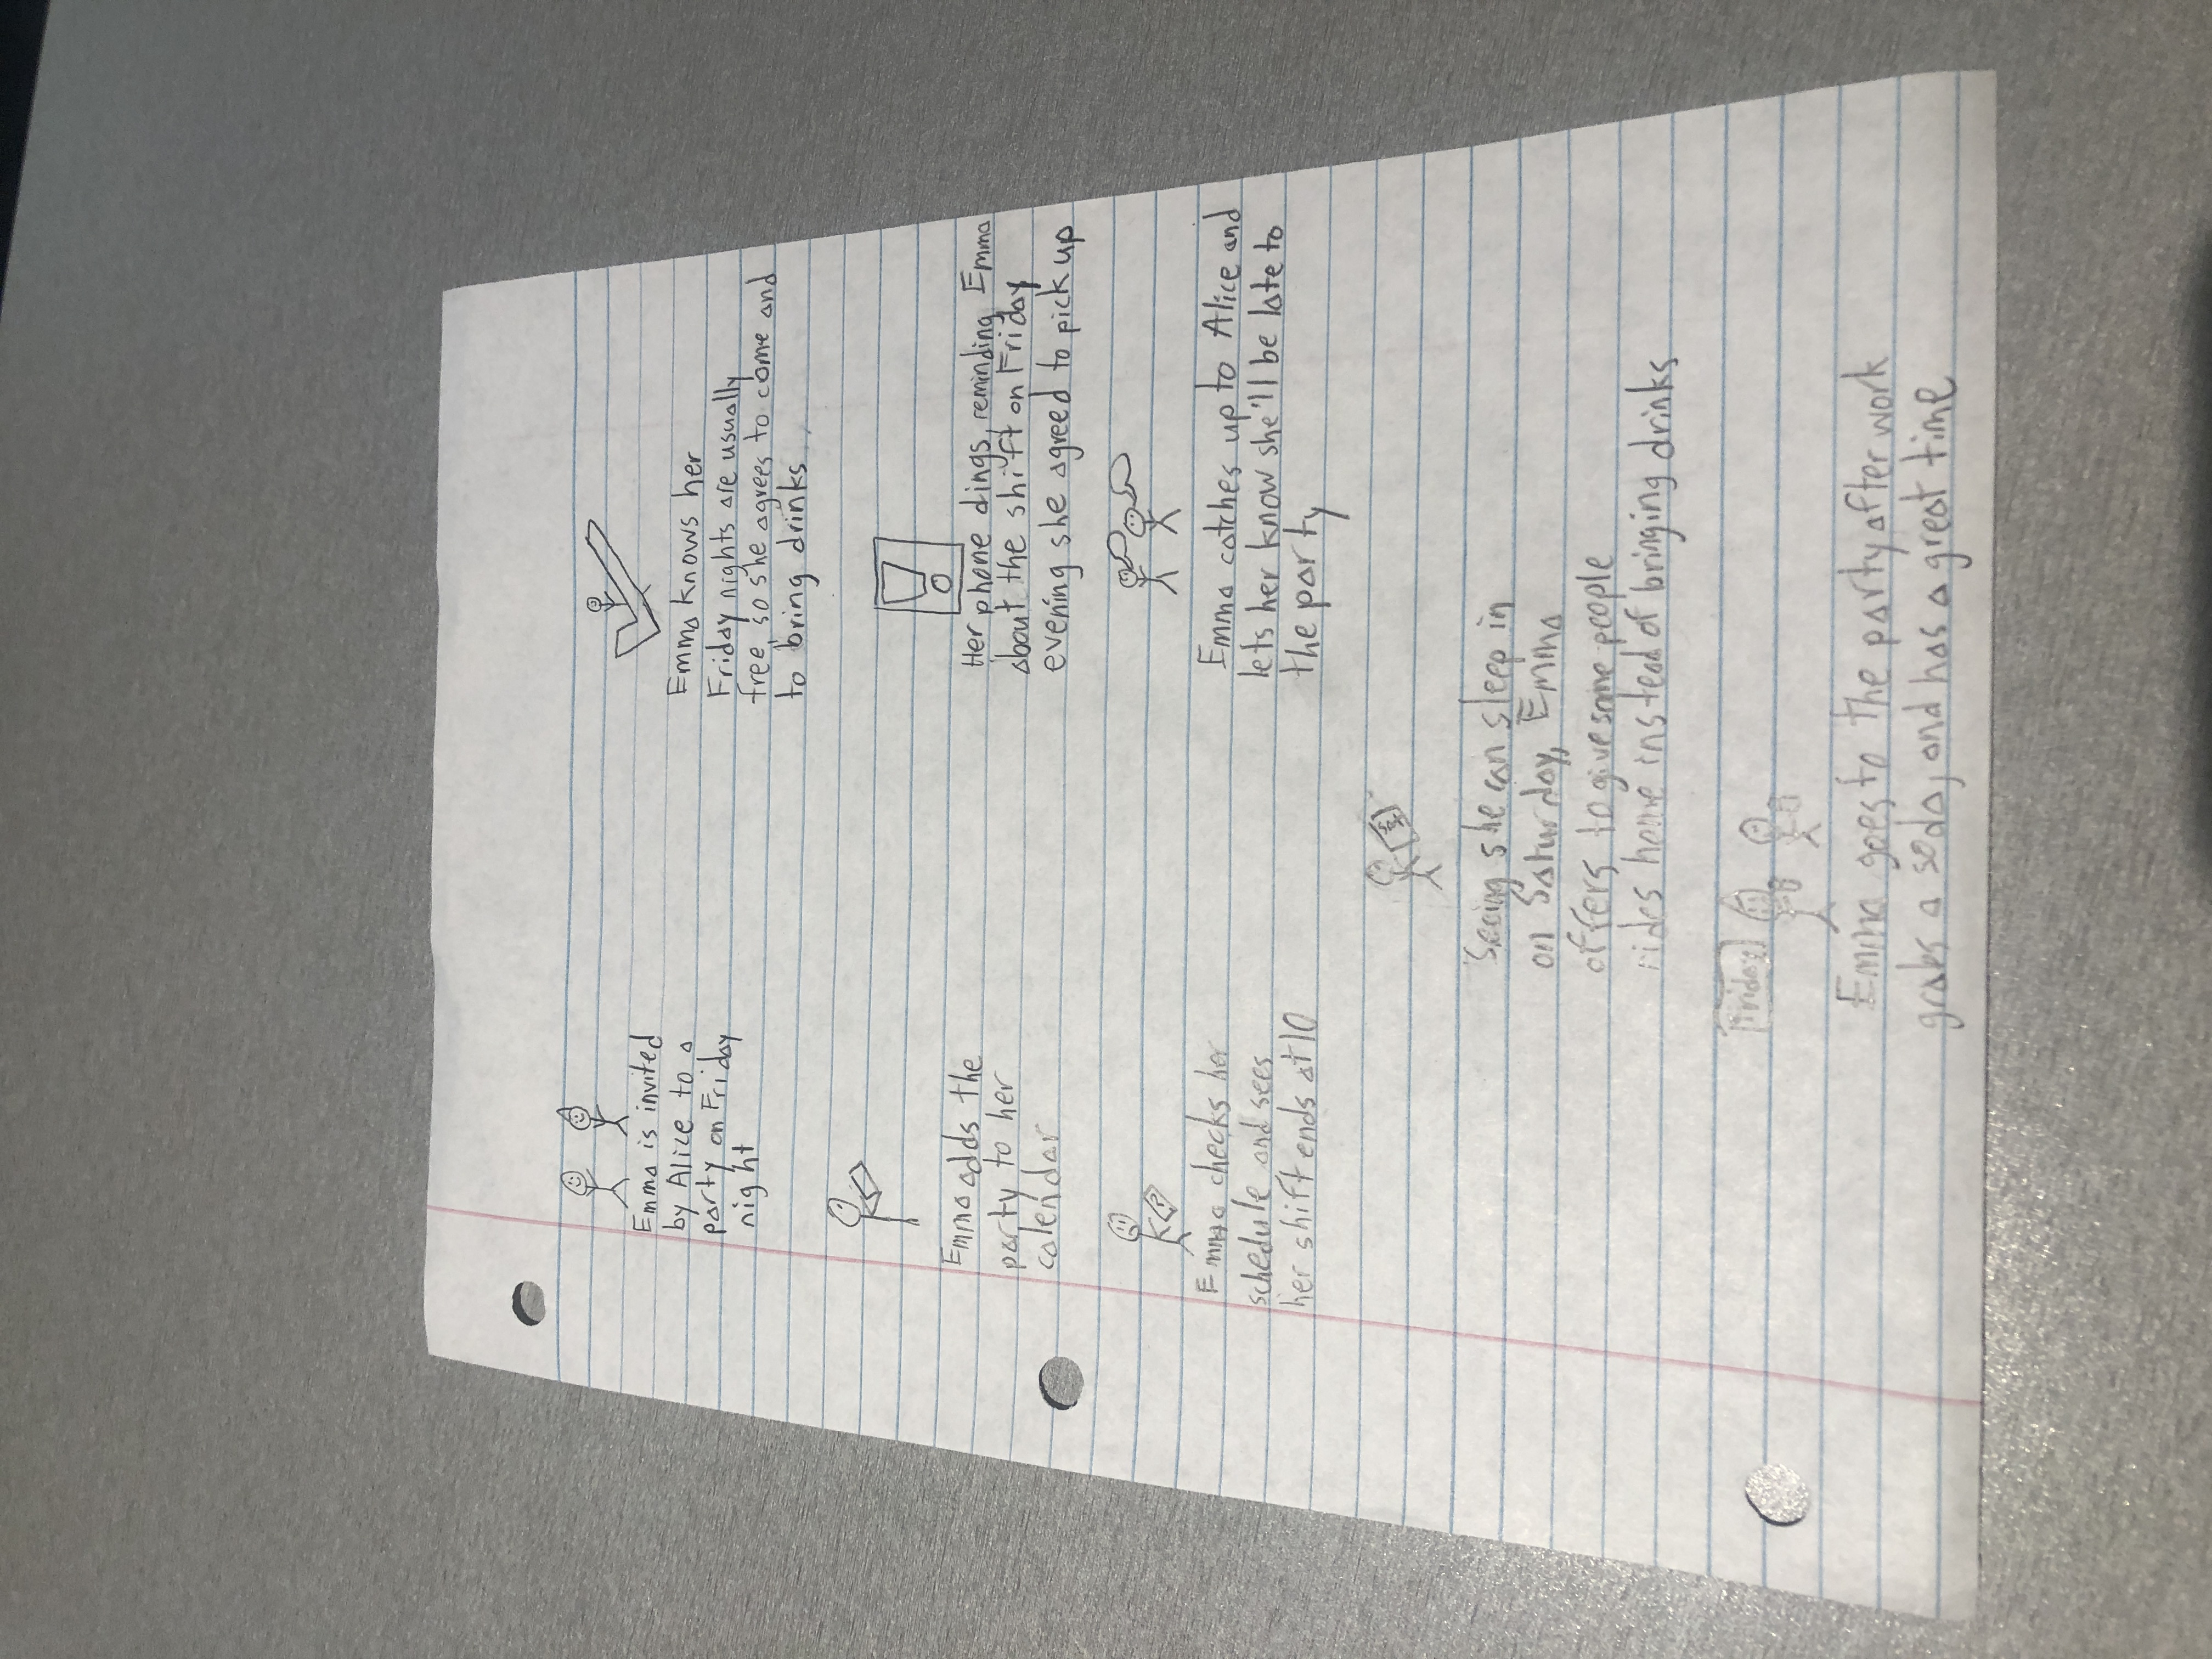 Emma is invited
by Alice to a
party on Friday
night
Emma knows her
Friday nights are usually
free, so she agrees to come and
to bring drinks
Emma adds the
party to her
calendar
!
Her phone dings, reminding Emma
about the shift on Friday
evening she agreed to pick up
Emma checks her
schedule and sees
her shift ends at 10
Emma catches up to Alice and
lets her know she'll be late to
the party
Seeing she can sleep in
on Saturday, Emma
offers to give some people
rides home instead of bringing drinks
Friday
Emma goes to the party after work
grabs a soda, and has a great time